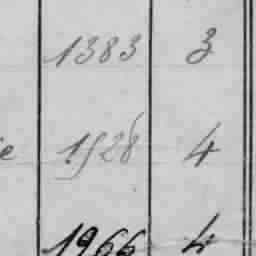 1383 3
e 1528 4
1966 4